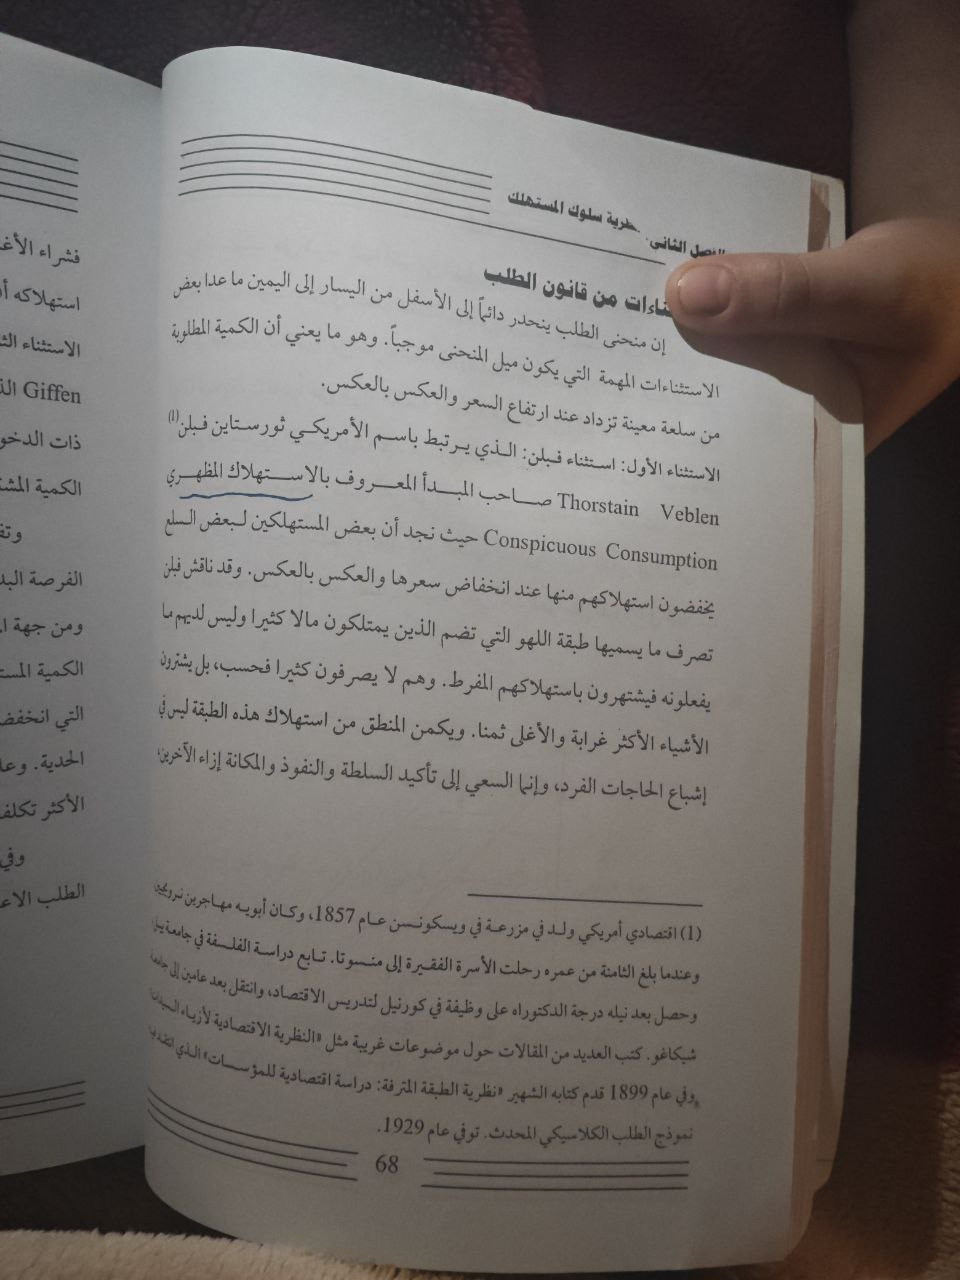 الفصل الثاني: نظرية سلوك المستهلك
من قانون الطلب
إن منحنى الطلب ينحدر دائماً إلى الأسفل من اليسار إلى اليمين ما عدا بعض
الاستثناءات المهمة التي يكون ميل المنحنى موجباً. وهو ما يعني أن الكمية المطلوبة
من سلعة معينة تزداد عند ارتفاع السعر والعكس بالعكس.
الاستثناء الأول: استثناء فبلن: الذي يرتبط باسم الأمريكي ثورستاين فبلن(1)
Thorstain Veblen صاحب المبدأ المعروف بالاستهلاك المظهري
Conspicuous Consumption حيث نجد أن بعض المستهلكين لبعض السلع
يخفضون استهلاكهم منها عند انخفاض سعرها والعكس بالعكس. وقد ناقش فبلن
تصرف ما يسميها طبقة اللهو التي تضم الذين يمتلكون مالا كثيرا وليس لديهم ما
يفعلونه فيشتهرون باستهلاكهم المفرط. وهم لا يصرفون كثيرا فحسب، بل يشترون
الأشياء الأكثر غرابة والأغلى ثمنا. ويكمن المنطق من استهلاك هذه الطبقة ليس في
إشباع الحاجات الفرد، وإنما السعي إلى تأكيد السلطة والنفوذ والمكانة إزاء الآخرين،
(1) اقتصادي أمريكي ولد في مزرعة في ويسكونسن عام 1857، وكان أبويه مهاجرين نرويجيين
وعندما بلغ الثامنة من عمره رحلت الأسرة الفقيرة إلى منسوتا. تابع دراسة الفلسفة في جامعة ييل،
وحصل بعد نيله درجة الدكتوراه على وظيفة في كورنيل لتدريس الاقتصاد، وانتقل بعد عامين إلى جامعة
شيكاغو. كتب العديد من المقالات حول موضوعات غريبة مثل «النظرية الاقتصادية لأزياء السيدات»
وفي عام 1899 قدم كتابه الشهير «نظرية الطبقة المترفة: دراسة اقتصادية للمؤسسات» الذي انتقد فيه
نموذج الطلب الكلاسيكي المحدث. توفي عام 1929.
68
فشراء
استهلاكه
الاستثناء
Giffen
ذات
الكمية
الفرصة
ومن جهة
الكمية
التي
الحدية. 
الأكثر
وفي
الطلب